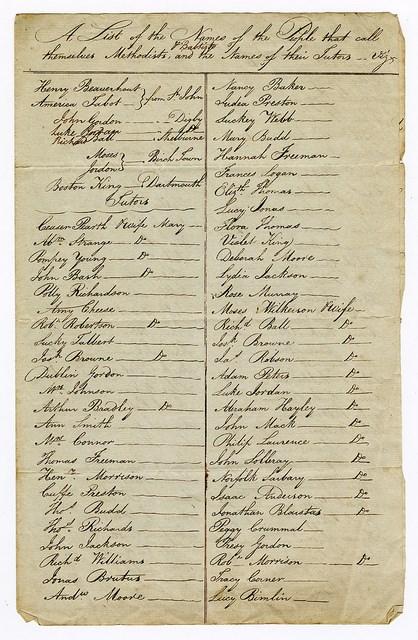 A List of the Names of the People that call
& Baptists
themselves Methodists, and the Names of their Tutors -- Viz
Henry Beauerhout
America Talbot } from St. John
John Gordon -- Digby
Luke Jordan
Richd Ball -- Shelburne
Moses
Jordon } Birch Town
Boston King -- Dartmouth
Tutors
Ceasar Perth & Wife Mary
Wm. Strange Do
Pompey Young Do
John Bash Do
Polly Richardson
Amy Cheese
Robt. Robertson Do
Lucky Talbert
Josh. Browne Do
Dublin Gordon
Wm. Johnson
Arthur Bradley Do
Ann Smith
Connor
Thomas Freeman
Henr. Morrison
Cuffe Preston
Thos. Budd
Thos. Richards
John Jackson
Richd. Williams
Jonas Brutus
Andw Moore
Nancy Baker
Judea Preston
Suckey Webb
Mary Budd
Hannah Freeman
Frances Logan
Elizth. Thomas
Lucy Jonas
Flora Thomas
Violet King
Deborah Moore
Lydia Jackson
Rose Murray
Moses Wilkerson & Wife
Richd. Ball Do
Josh. Browne Do
Jas. Robson Do
Adam Peters Do
Luke Jordan Do
Abraham Hayley Do
John Mack Do
Philip Laurence Do
John Do
Norfolk Do
Isaac Anderson Do
Jonathan Do
Peggy Crummal
Gordon
Robt. Morrison Do
Tracy Corner
Lucy Bimlin